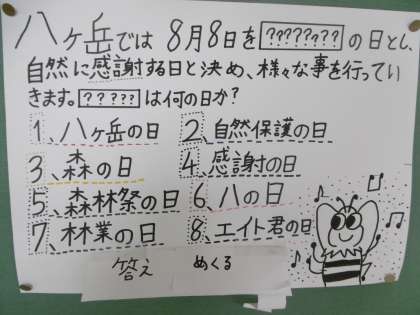 八ヶ岳では 8月8日を ???????? の日とし、
自然に感謝する日と決め、様々な事を行ってい
きます。 ????? は何の日か?
1、八ヶ岳の日 2、自然保護の日
3、森の日 4、感謝の日
5、森林祭の日 6、八の日
7、林業の日 8、エイト君の日
答え めくる